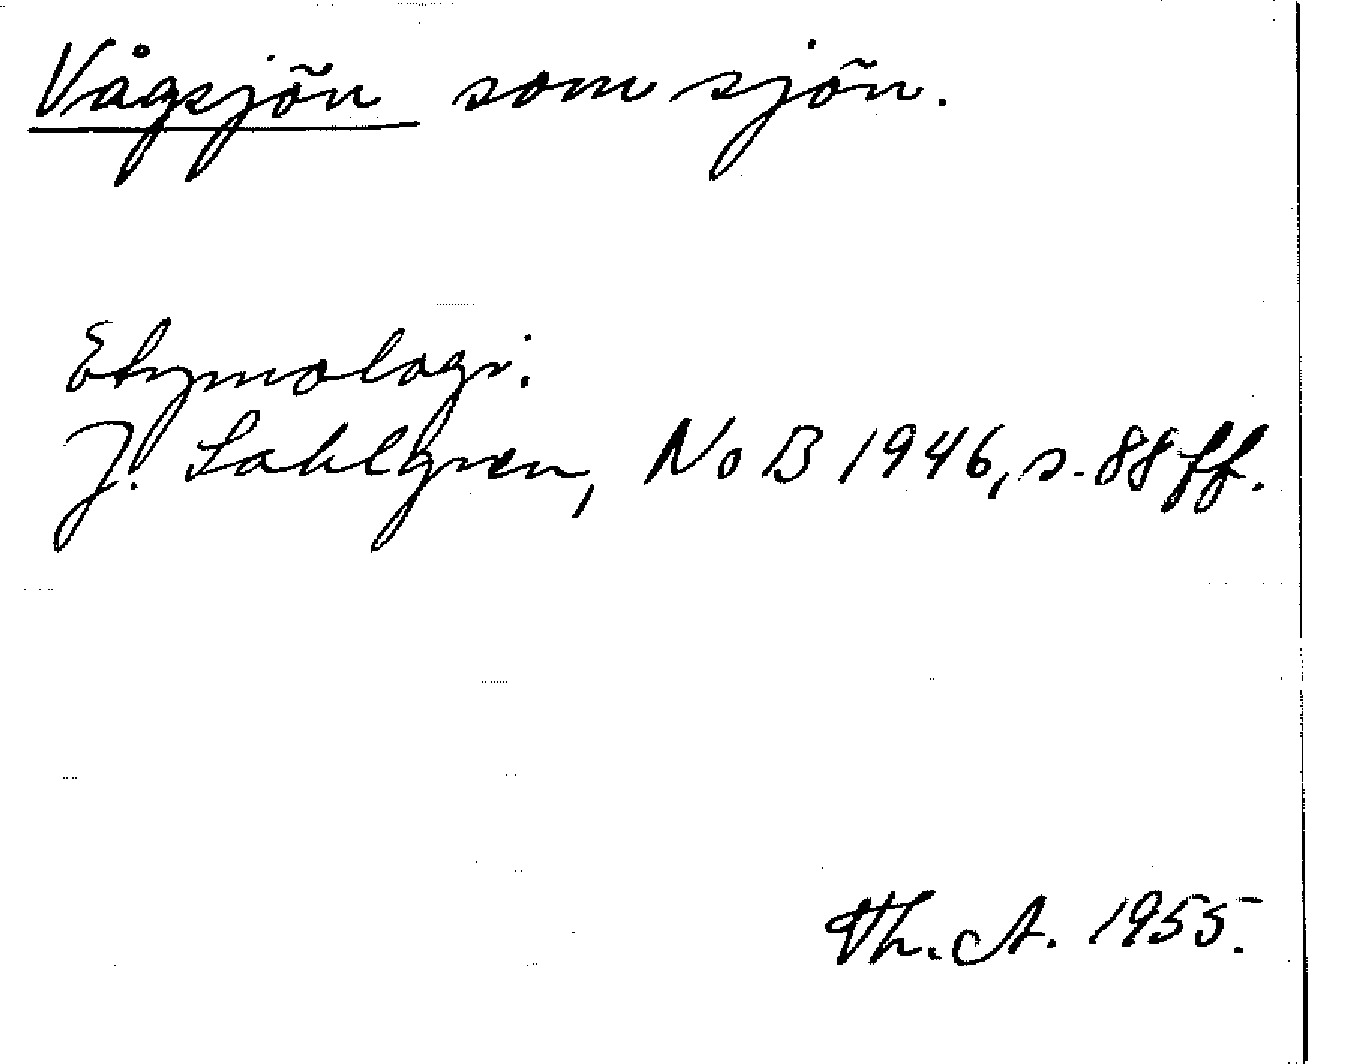 Vågsjön som sjön.
Etymologi.
J. Sahlgren, NoB 1946, s. 88 ff.
Th. A. 1955.